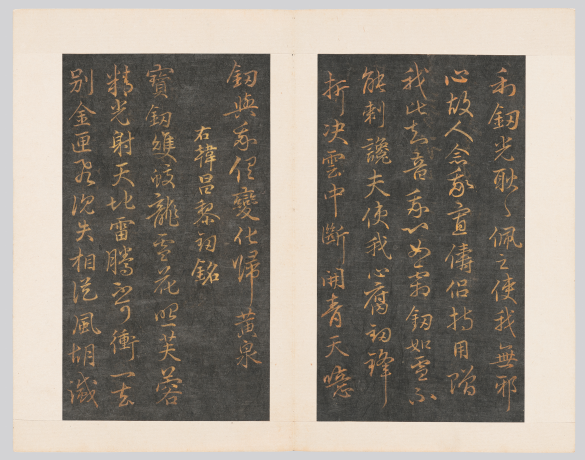 利釼光耿々佩之使我無邪
心故人念我寡儔侶持用贈
我比知音我心如霜釼如雪不
能刺讒夫使我心腐釼鋒
折決雲中斷開青天噫
釼與我俱變化歸黃泉
右韓昌黎釼銘
寶釼雙蛟龍雪花照芙蓉
精光射天地雷騰不可衝一去
別金匣飛沉失相從風胡滅